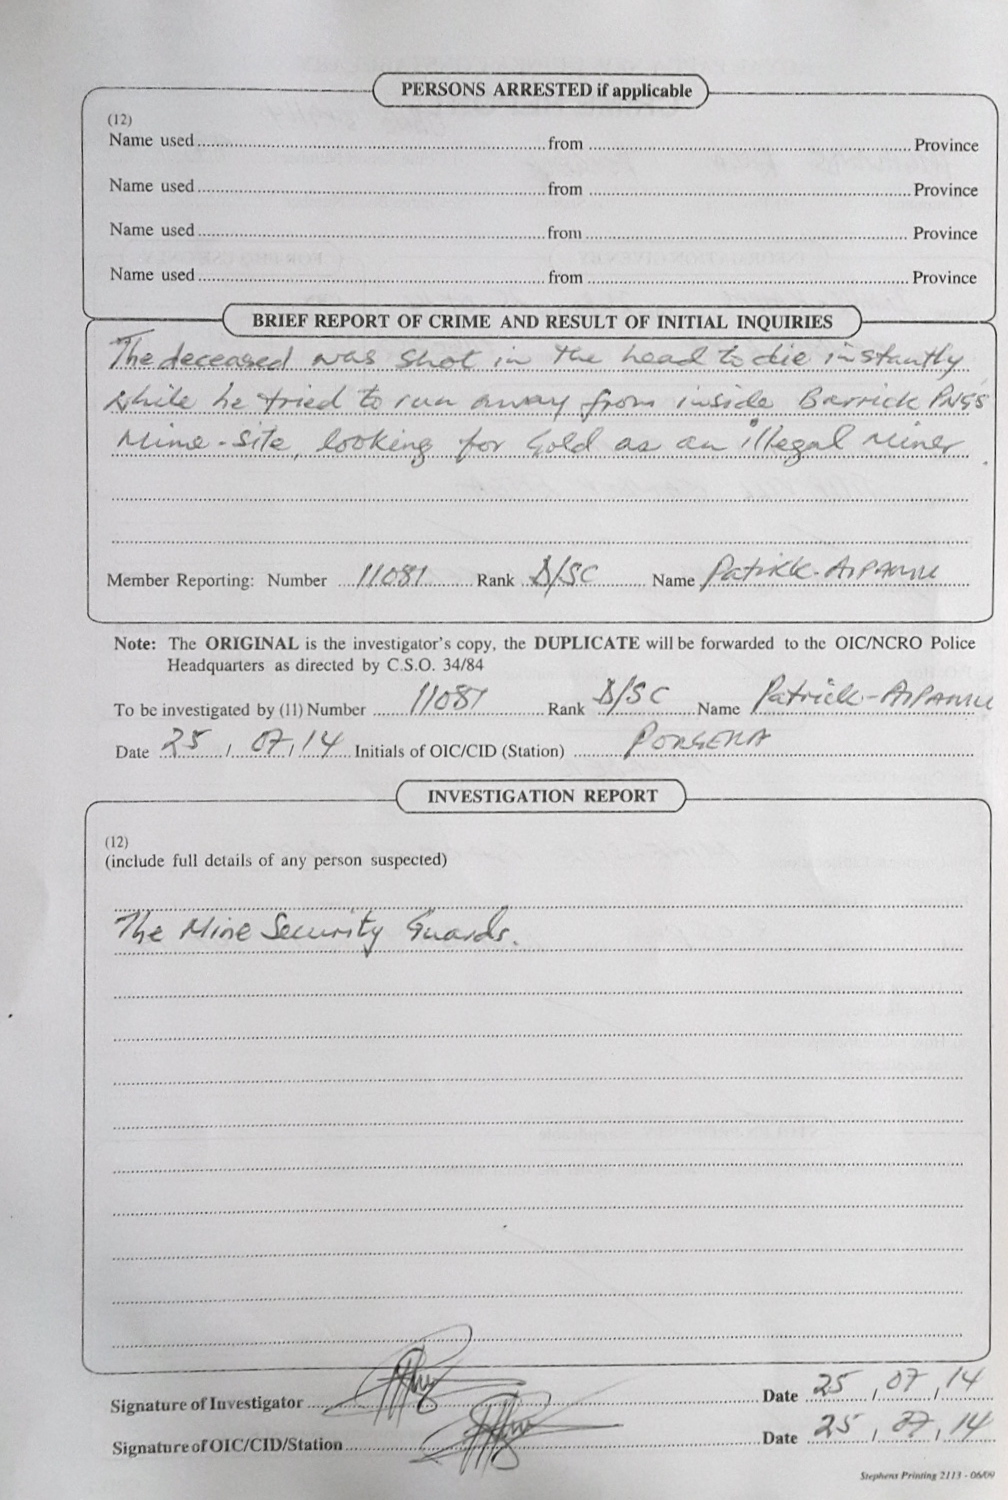 PERSONS ARRESTED if applicable
(12)
Name used from Province
Name used from Province
Name used from Province
Name used from Province
BRIEF REPORT OF CRIME AND RESULT OF INITIAL INQUIRIES
The deceased was shot in the head to die instantly
while he tried to run away from inside Barrick PNG's
Mine-site, looking for Gold as an illegal Miner.
Member Reporting: Number 11081 Rank D/SC Name Patrick-AIPAMU
Note: The ORIGINAL is the investigator's copy, the DUPLICATE will be forwarded to the OIC/NCRO Police
Headquarters as directed by C.S.O. 34/84
To be investigated by (11) Number 11081 Rank D/SC Name Patrick-AIPAMU
Date 25 / 07 / 14 Initials of OIC/CID (Station) PORGERA
INVESTIGATION REPORT
(12)
(include full details of any person suspected)
The Mine Security Guards.
Signature of Investigator Date 25 / 07 / 14
Signature of OIC/CID/Station Date 25 / 07 / 14
Stephens Printing 2113 - 06/09